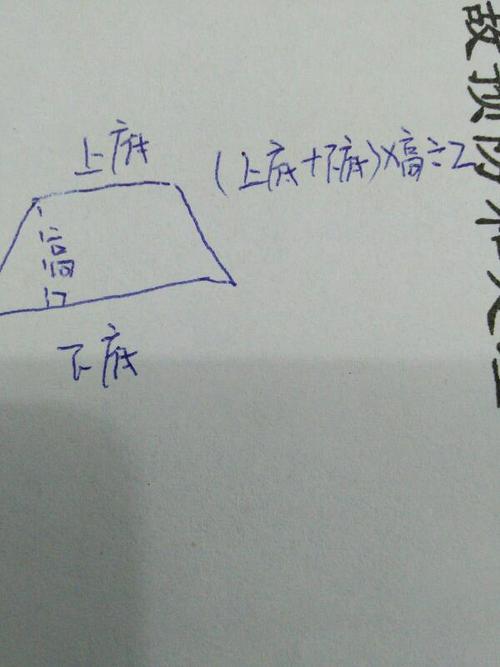 上底
(上底+下底)×高÷2
高
下底
故预防和处理